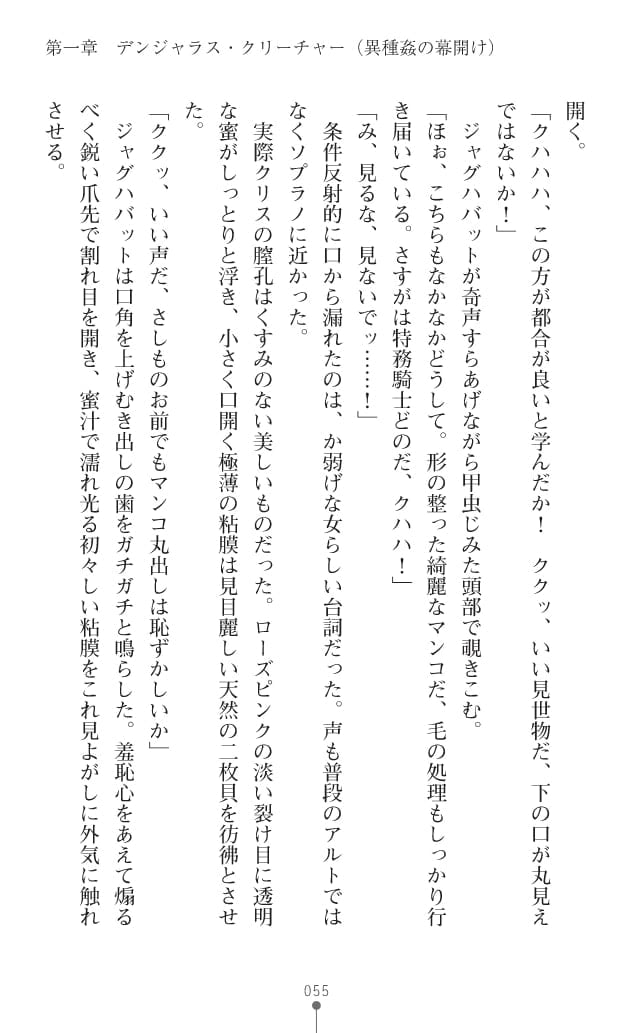 第一章　デンジャラス・クリーチャー（異種姦の幕開け）
開く。
「クハハハ、この方が都合が良いと学んだか！　ククッ、いい見世物だ、下の口が丸見え
ではないか！」
　ジャグハバットが奇声すらあげながら甲虫じみた頭部で覗きこむ。
「ほぉ、こちらもなかなかどうして。形の整った綺麗なマンコだ、毛の処理もしっかり行
き届いている。さすがは特務騎士どのだ、クハハ！」
「み、見るな、見ないでッ……！」
　条件反射的に口から漏れたのは、か弱げな女らしい台詞だった。声も普段のアルトでは
なくソプラノに近かった。
　実際クリスの膣孔はくすみのない美しいものだった。ローズピンクの淡い裂け目に透明
な蜜がしっとりと浮き、小さく口開く極薄の粘膜は見目麗しい天然の二枚貝を彷彿とさせ
た。
「ククッ、いい声だ、さしものお前でもマンコ丸出しは恥ずかしいか」
　ジャグハバットは口角を上げむき出しの歯をガチガチと鳴らした。羞恥心をあえて煽る
べく鋭い爪先で割れ目を開き、蜜汁で濡れ光る初々しい粘膜をこれ見よがしに外気に触れ
させる。
055